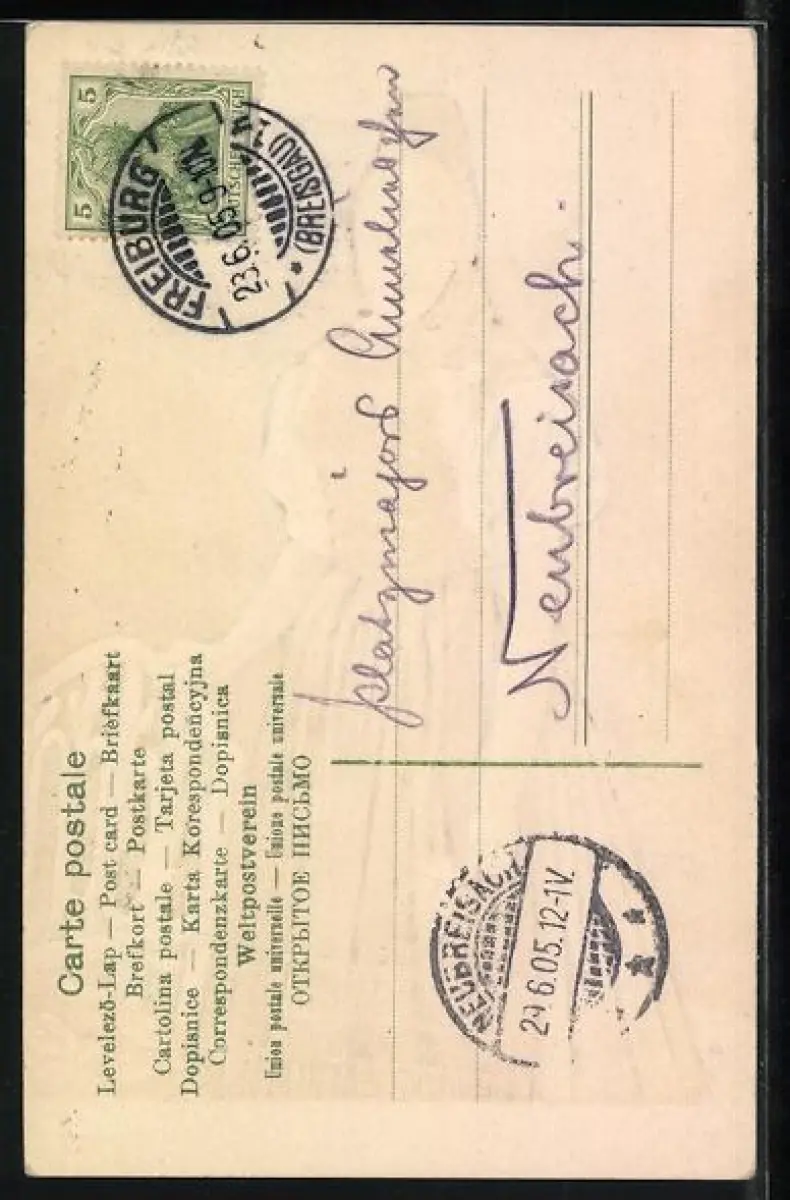 Carte postale
Levelező-Lap — Post card — Briefkaart
Brefkort — Postkarte
Cartolina postale — Tarjeta postal
Dopisnice — Karta Korespondencyjna
Correspondenzkarte — Dopisnica
Weltpostverein
Union postale universelle — Unione postale universale
ОТКРЫТОЕ ПИСЬМО
5 5
FREIBURG
23.6.05.9-10N.
* (BREISGAU) 1.
platzmajors
Neubreisach.
NEUBREISACH
24.6.05.12-1V.